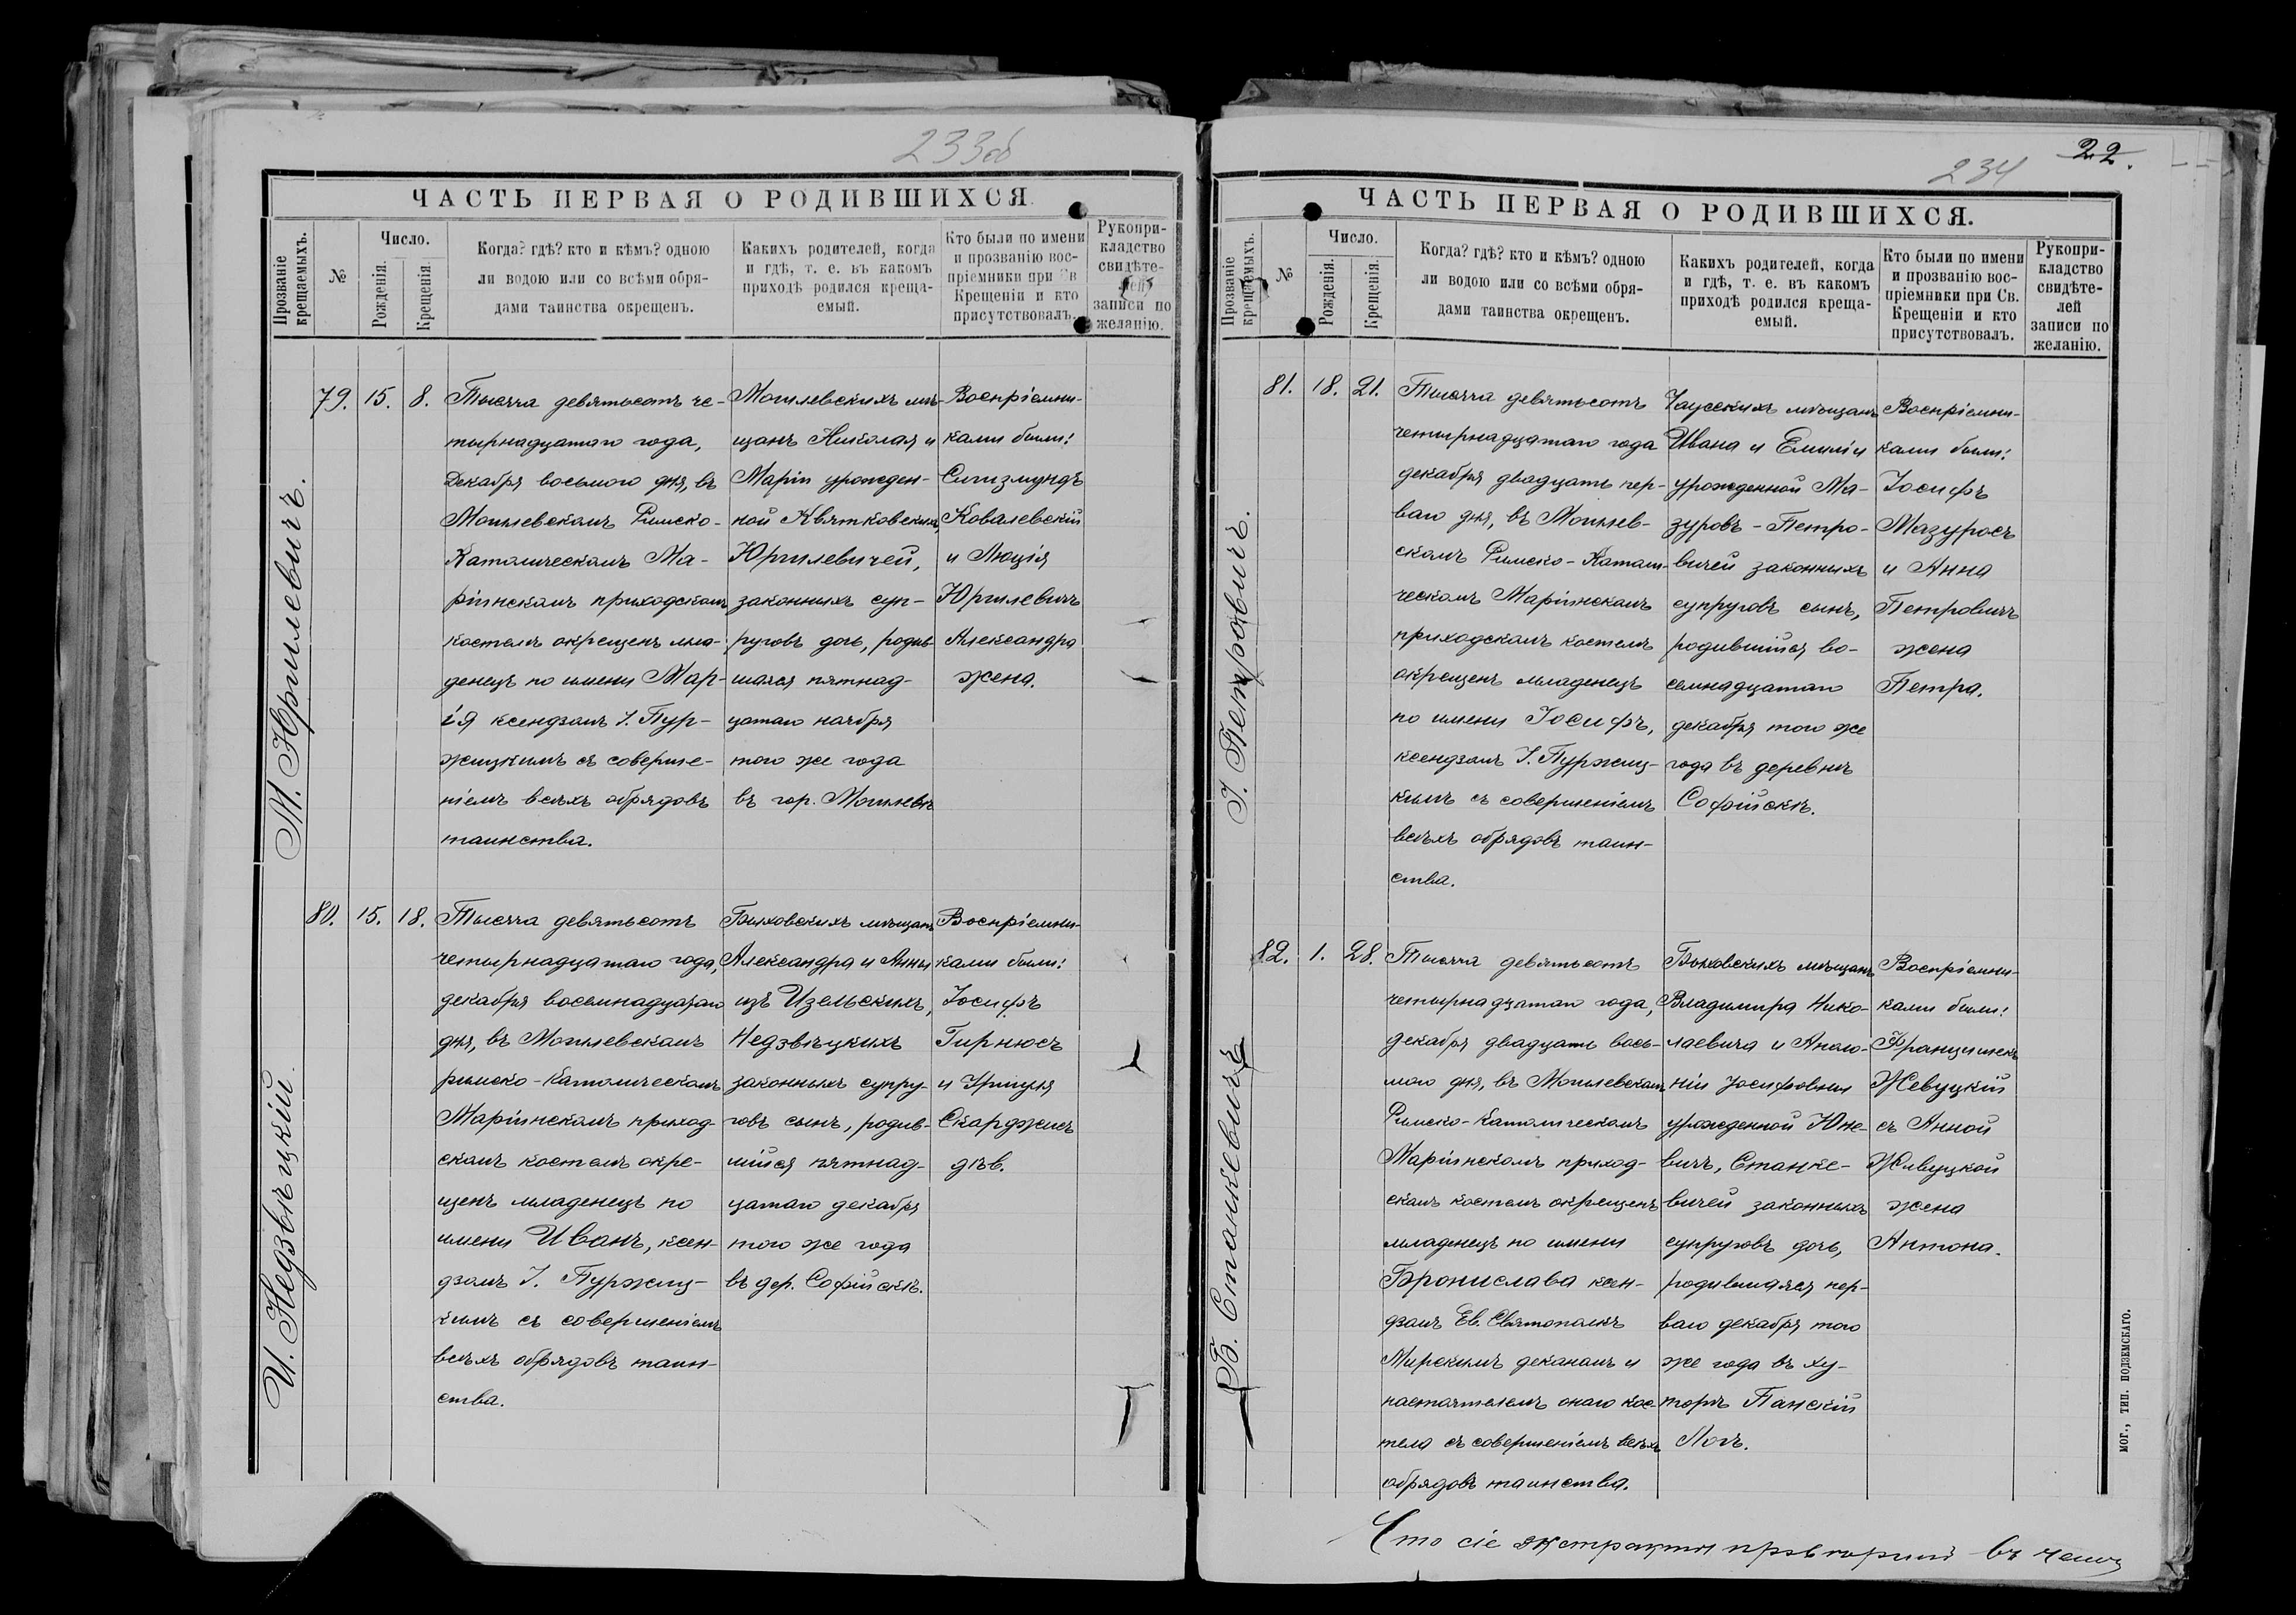 233об
ЧАСТЬ ПЕРВАЯ О РОДИВШИХСЯ.
Прозваніе крещаемыхъ.
№
Число.
Рожденія.
Крещенія.
Когда? гдѣ? кто и кѣмъ? одною
ли водою или со всѣми обря-
дами таинства окрещенъ.
Какихъ родителей, когда
и гдѣ, т. е. въ какомъ
приходѣ родился креща-
емый.
Кто были по имени
и прозванію вос-
пріемники при Св.
Крещеніи и кто
присутствовалъ.
Рукопри-
кладство
свидѣте-
лей
записи по
желанію.
М. Юргилевичъ.
79. 15. 8.
Тысяча девятьсотъ че-
тырнадцатаго года,
Декабря восьмого дня, въ
Могилевскомъ Римско-
Католическомъ Ма-
ріинскомъ приходскомъ
костелѣ окрещенъ мла-
денецъ по имени Мар-
ія ксендзомъ І. Пур-
жицкимъ съ соверше-
ніемъ всѣхъ обрядовъ
таинства.
Могилевскихъ мѣ-
щанъ Николая и
Маріи урожден-
ной Квятковскихъ,
Юргилевичей,
законныхъ суп-
руговъ дочь, родив-
шаяся пятнад-
цатаго ноября
того же года
въ гор. Могилевѣ
Воспріемни-
ками были:
Сигизмундъ
Ковалевскій
и Люція
Юргилевичъ
Александра
жена.
И. Недзвѣцкій.
80. 15. 18.
Тысяча девятьсотъ
четырнадцатаго года,
декабря восемнадцатаго
дня, въ Могилевскомъ
римско-католическомъ
Маріинскомъ приход-
скомъ костелѣ окре-
щенъ младенецъ по
имени Иванъ, ксен-
дзомъ І. Пуржиц-
кимъ съ совершеніемъ
всѣхъ обрядовъ таин-
ства.
Быховскихъ мѣщанъ
Александра и Анны
изъ Изельскихъ,
Недзвѣцкихъ
законныхъ супру-
говъ сынъ, родив-
шійся пятнад-
цатаго декабря
того же года
въ дер. Софійскѣ.
Воспріемни-
ками были:
Іосифъ
Гирнюсъ
и Уршуля
Скарджисъ
дѣв.
22.
234
ЧАСТЬ ПЕРВАЯ О РОДИВШИХСЯ.
Прозваніе крещаемыхъ.
№
Число.
Рожденія.
Крещенія.
Когда? гдѣ? кто и кѣмъ? одною
ли водою или со всѣми обря-
дами таинства окрещенъ.
Какихъ родителей, когда
и гдѣ, т. е. въ какомъ
приходѣ родился креща-
емый.
Кто были по имени
и прозванію вос-
пріемники при Св.
Крещеніи и кто
присутствовалъ.
Рукопри-
кладство
свидѣте-
лей
записи по
желанію.
І. Петровичъ.
81. 18. 21.
Тысяча девятьсотъ
четырнадцатаго года
декабря двадцать пер-
ваго дня, въ Могилев-
скомъ Римско-Католи-
ческомъ Маріинскомъ
приходскомъ костелѣ
окрещенъ младенецъ
по имени Іосифъ,
ксендзомъ І. Пуржиц-
кимъ съ совершеніемъ
всѣхъ обрядовъ таин-
ства.
Чаусскихъ мѣщанъ
Ивана и Емиліи
урожденной Ма-
зуровъ-Петро-
вичей законныхъ
супруговъ сынъ,
родившійся во-
семнадцатаго
декабря того же
года въ деревнѣ
Софійскѣ.
Воспріемни-
ками были:
Іосифъ
Мазуросъ
и Анна
Петровичъ
жена
Петра.
Б. Станкевичъ
82. 1. 28.
Тысяча девятьсотъ
четырнадцатаго года,
декабря двадцать вось-
мого дня, въ Могилевскомъ
Римско-Католическомъ
Маріинскомъ приход-
скомъ костелѣ окрещенъ
младенецъ по имени
Бронислава ксен-
дзомъ Ев. Святополкъ
Мирскимъ деканомъ и
настоятелемъ онаго кос-
тела съ совершеніемъ всѣхъ
обрядовъ таинства.
Быховскихъ мѣщанъ
Владимира Нико-
лаевича и Аполо-
ніи Іосифовны
урожденной Юне-
вичъ, Станке-
вичей законныхъ
супруговъ дочь,
родившаяся пер-
ваго декабря того
же года въ ху-
торѣ Панскій
Логъ.
Воспріемни-
ками были:
Францишекъ
Жевуцкій
съ Анной
Жевуцкой
жена
Антона.
МОГ., ТИП. ПОДЗЕМСКАГО.
Что сіе въ чемъ